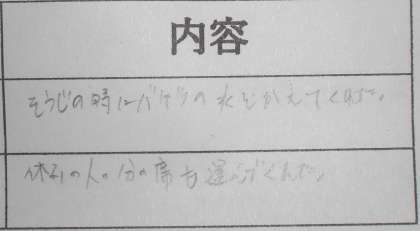 内容
そうじの時にバケツの水をかえてくれた。
休みの人の分の席も運んでくれた。